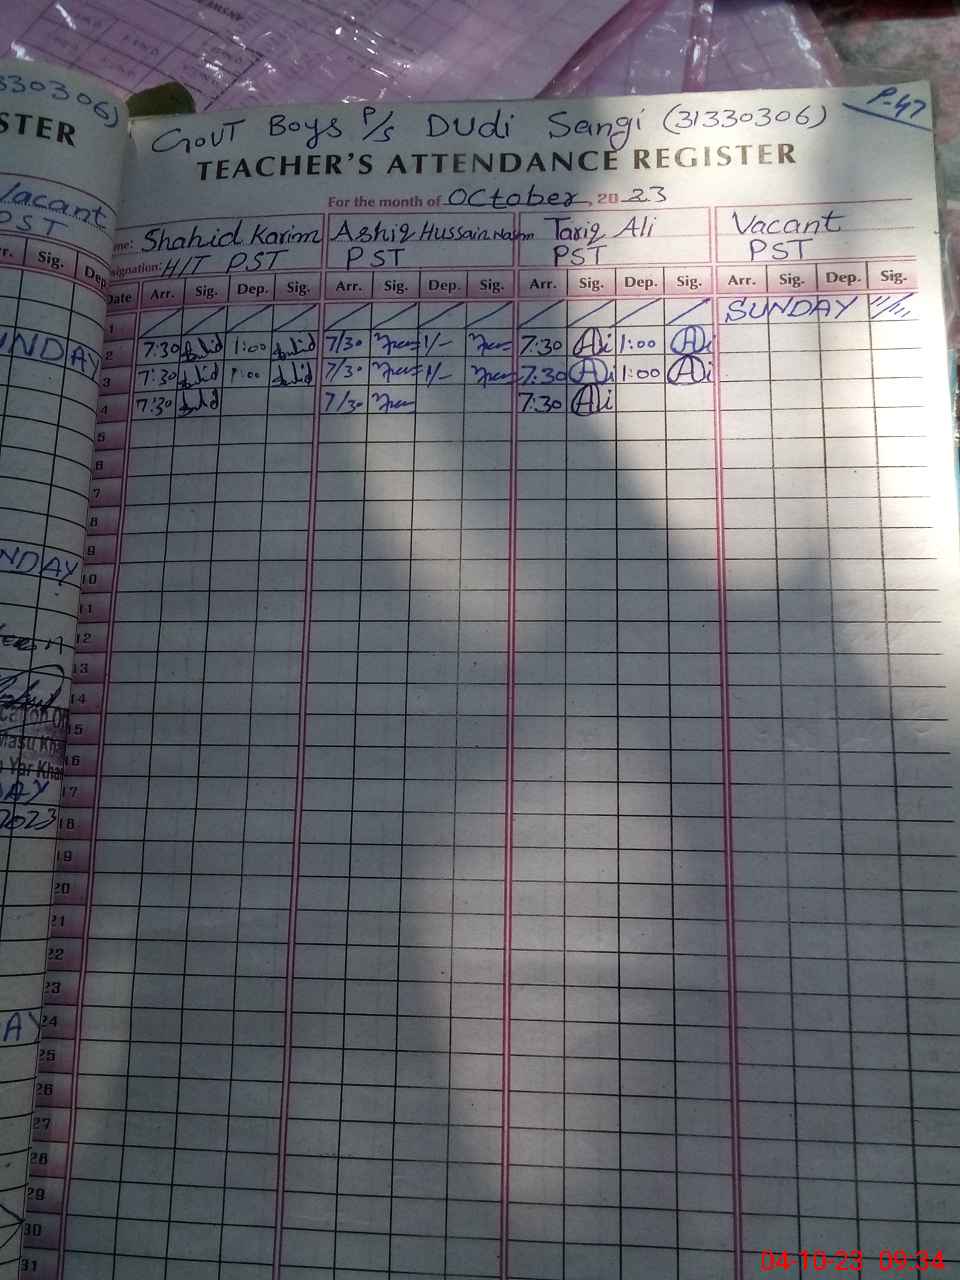 330306)
STER
Vacant
PST
rr. Sig. Dep.
UNDAY
NDAY
Masu Kha
Yar Khan
AY
2023
AY
P-47
GOVT Boys P/S DUdi Sangi (31330306)
TEACHER'S ATTENDANCE REGISTER
For the month of October, 2023
me: Shahid Karim Ashiq Hussain Tariq Ali Vacant
signation: H/T PST PST PST PST
Date Arr. Sig. Dep. Sig. Arr. Sig. Dep. Sig. Arr. Sig. Dep. Sig. Arr. Sig. Dep. Sig.
1 SUNDAY
2 7:30 1:00 7/30 1/- 7:30 Ali 1:00 Ali
3 7:30 1:00 7/30 1/- 7:30 Ali 1:00 Ali
4 7:30 7/30 7:30 Ali
5
6
7
8
9
10
11
12
13
14
15
16
17
18
19
20
21
22
23
24
25
26
27
28
29
30
31
04-10-23 09:34